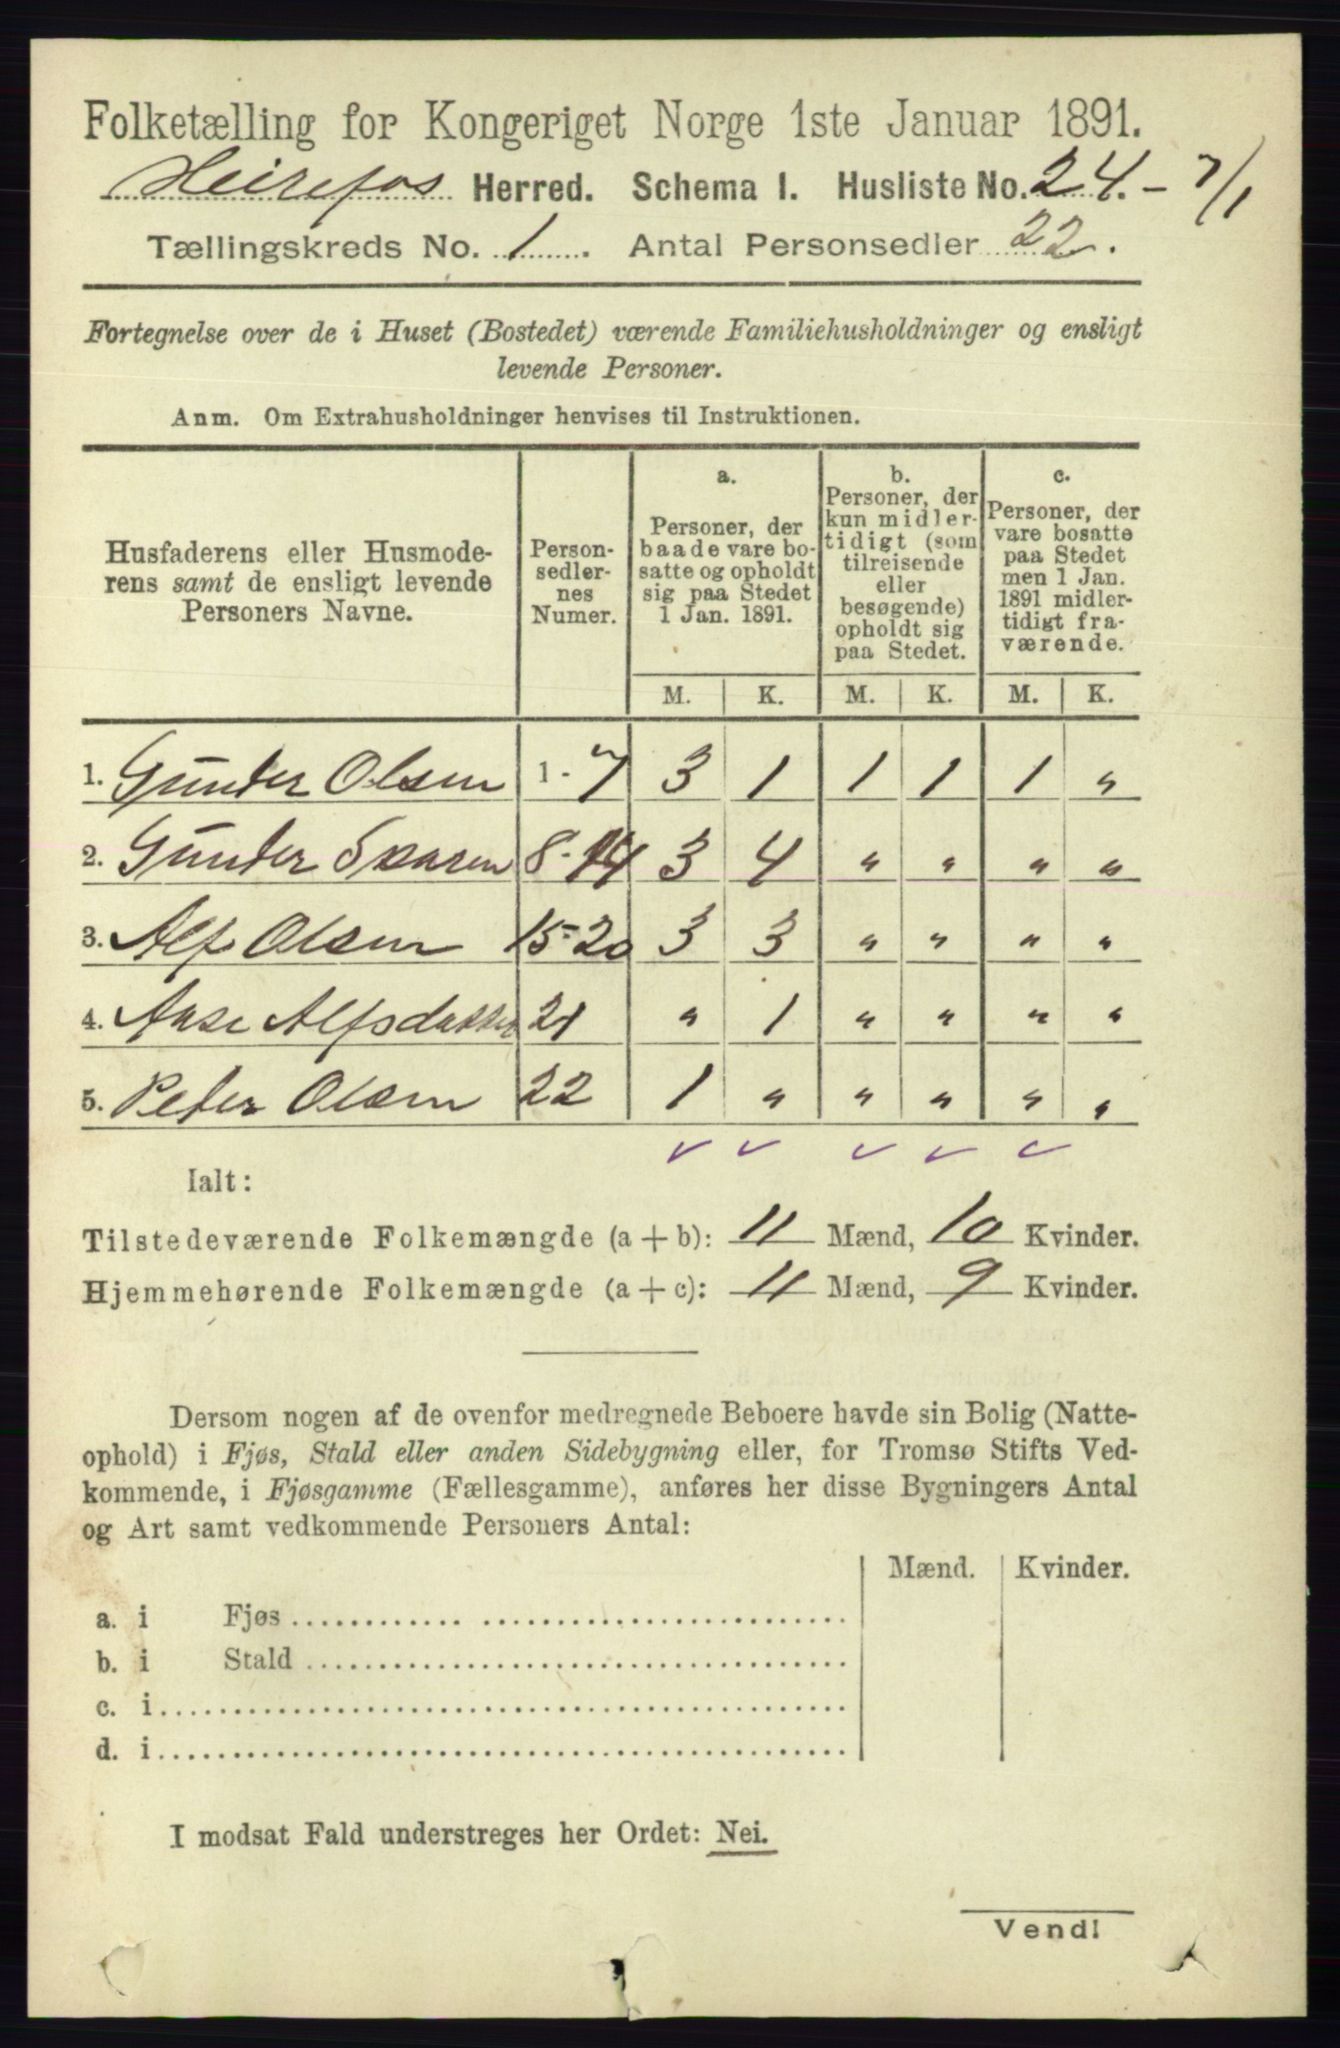 Folketælling for Kongeriget Norge 1ste Januar 1891.
Heirefos Herred. Schema 1. Husliste No. 24. - 7/1
Tællingskreds No. 1. Antal Personsedler 22.
Fortegnelse over de i Huset (Bostedet) værende Familiehusholdninger og ensligt
levende Personer.
Anm. Om Extrahusholdninger henvises til Instruktionen.
Husfaderens eller Husmode-
rens samt de ensligt levende
Personers Navne.
Person-
sedler-
nes
Numer.
a.
Personer, der
baade vare bo-
satte og opholdt
sig paa Stedet
1 Jan. 1891.
b.
Personer, der
kun midler-
tidigt (som
tilreisende
eller
besøgende)
opholdt sig
paa Stedet.
c.
Personer, der
vare bosatte
paa Stedet
men 1 Jan.
1891 midler-
tidigt fra-
værende.
M. K. M. K. M. K.
1. Gunder Olsen 1 - 7 3 1 1 1 1 "
2. Gunder 8-14 3 4 " " " "
3. Alf Olsen 15-20 3 3 " " " "
4. Aase 21 " 1 " " " "
5. Peter Olsen 22 1 " " " " "
Ialt:
Tilstedeværende Folkemængde (a + b): 11 Mænd, 10 Kvinder.
Hjemmehørende Folkemængde (a + c): 11 Mænd, 9 Kvinder.
Dersom nogen af de ovenfor medregnede Beboere havde sin Bolig (Natte-
ophold) i Fjøs, Stald eller anden Sidebygning eller, for Tromsø Stifts Ved-
kommende, i Fjøsgamme (Fællesgamme), anføres her disse Bygningers Antal
og Art samt vedkommende Personers Antal:
Mænd. Kvinder.
a. i Fjøs
b. i Stald
c. i
d. i
I modsat Fald understreges her Ordet: Nei.
Vend!